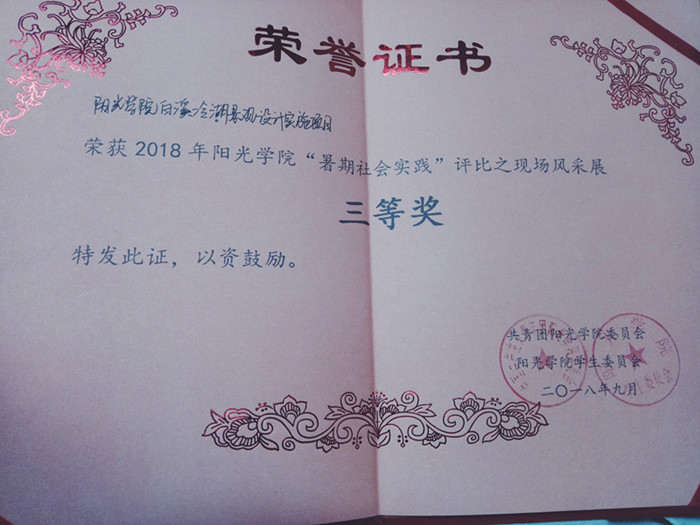 荣誉证书
阳光学院白溪冷湖景观设计实施项目
荣获2018年阳光学院“暑期社会实践”评比之现场风采展
三等奖
特发此证，以资鼓励。
共青团阳光学院委员会
阳光学院学生委员会
二〇一八年九月